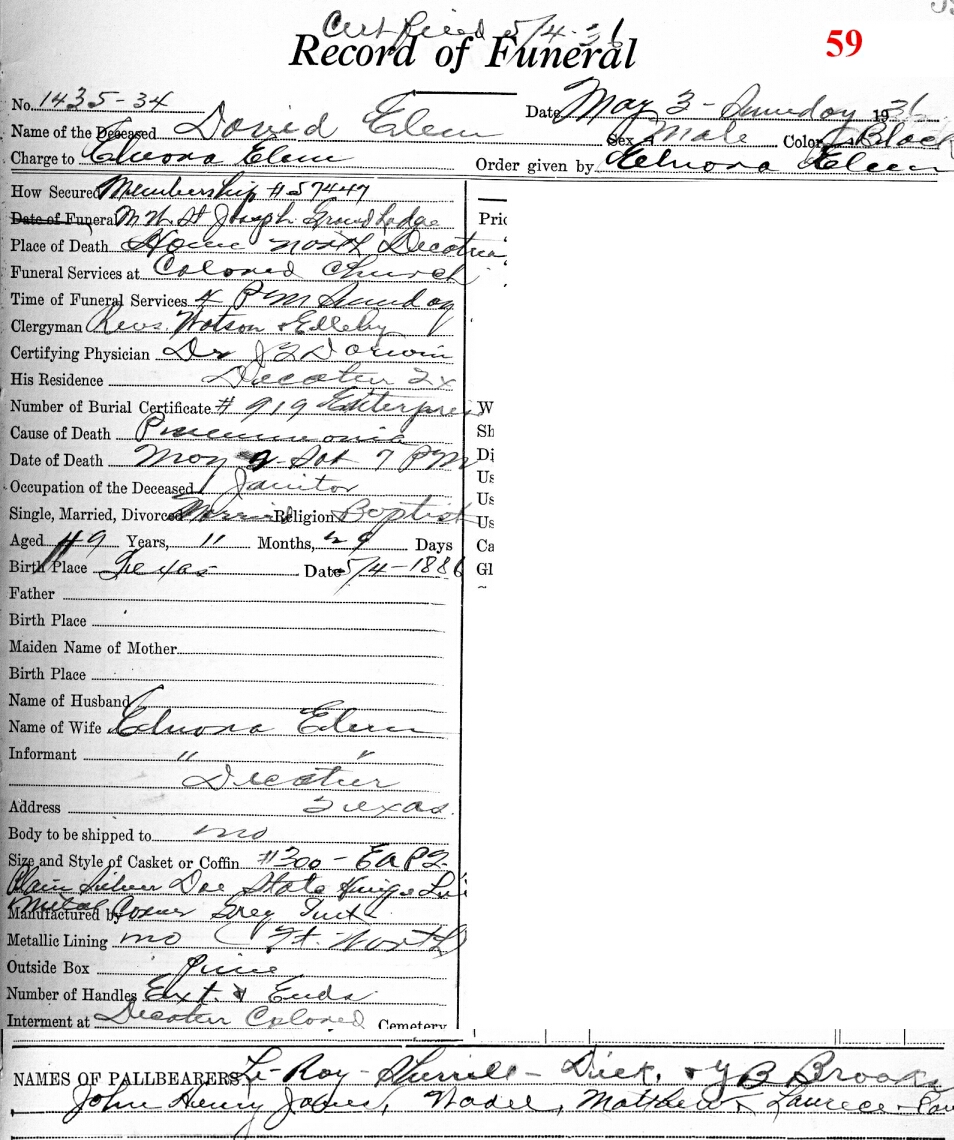 Certified 5/4-36
Record of Funeral
59
No. 1435-34
Date May 3 - Sunday 1936
Name of the Deceased David Elem Sex Male Color Black
Charge to Elnora Elem Order given by Elnora Elem
How Secured Membership #57447
Date of Funeral M W St Joseph Grand Lodge
Pric
Place of Death Home North Decatur
Funeral Services at Colored Church
Time of Funeral Services 4 P M Sunday
Clergyman Revs. Watson & Elleby
Certifying Physician Dr J
His Residence Decatur Tx
Number of Burial Certificate # 919 Enterprise
W
Cause of Death Pneumonia
Sh
Date of Death May 2 Sat 7 PM
Di
Occupation of the Deceased Janitor
Us
Us
Single, Married, Divorced Married Religion Baptist
Us
Aged 49 Years, 11 Months, 29 Days
Ca
Birth Place Texas Date 5/4-1886
Gl
Father
Birth Place
Maiden Name of Mother
Birth Place
Name of Husband
Name of Wife Elnora Elem
Informant " "
Decatur
Address Texas
Body to be shipped to no
Size and Style of Casket or Coffin #300 -
Plain Silver Doe State
Manufactured by Metal Grey
Metallic Lining no Ft. Worth
Outside Box Pine
Number of Handles Ext. & Ends
Interment at Decatur Colored Cemetery
NAMES OF PALLBEARERS Le-Roy - Sherrill - Dick, & Y B Brooks
John Henry James, Wadel, Matthew & Laurece